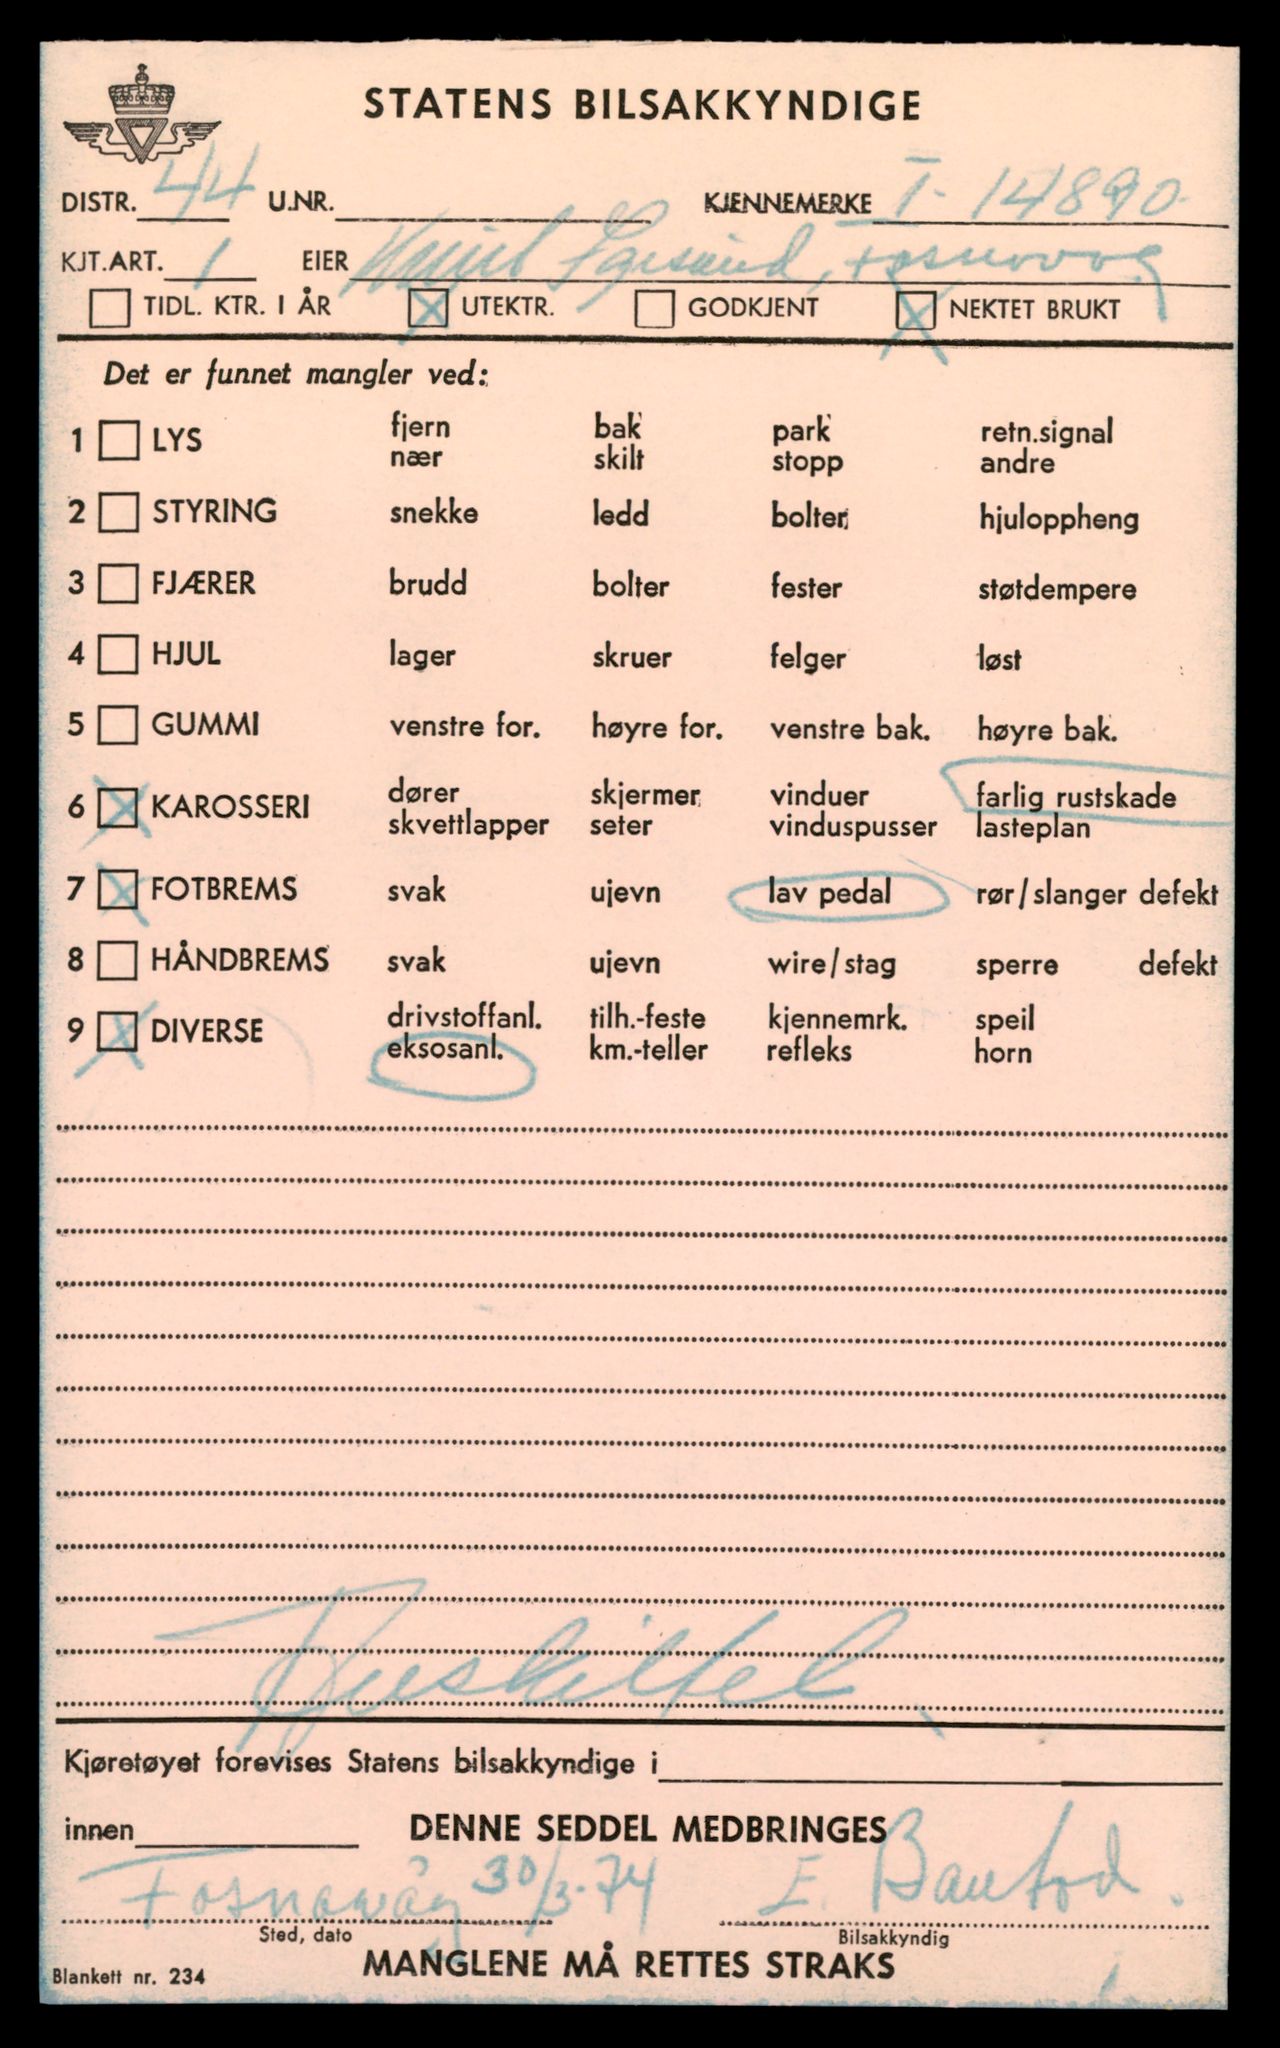 STATENS BILSAKKYNDIGE
DISTR. 44 U.NR. KJENNEMERKE T- 14890
KJT.ART. 1 EIER Egesund, Fosnavåg
TIDL. KTR. I ÅR X UTEKTR. GODKJENT X NEKTET BRUKT
Det er funnet mangler ved:
1 LYS fjern bak park retn.signal
nær skilt stopp andre
2 STYRING snekke ledd bolter hjuloppheng
3 FJÆRER brudd bolter fester støtdempere
4 HJUL lager skruer felger løst
5 GUMMI venstre for. høyre for. venstre bak. høyre bak.
6 X KAROSSERI dører skjermer vinduer farlig rustskade
skvettlapper seter vinduspusser lasteplan
7 X FOTBREMS svak ujevn lav pedal rør/slanger defekt
8 HÅNDBREMS svak ujevn wire/stag sperre defekt
9 X DIVERSE drivstoffanl. tilh.-feste kjennemrk. speil
eksosanl. km.-teller refleks horn
Avskiltet
Kjøretøyet forevises Statens bilsakkyndige i
innen DENNE SEDDEL MEDBRINGES
Fosnavåg 30/3-74 E.
Sted, dato Bilsakkyndig
MANGLENE MÅ RETTES STRAKS
Blankett nr. 234